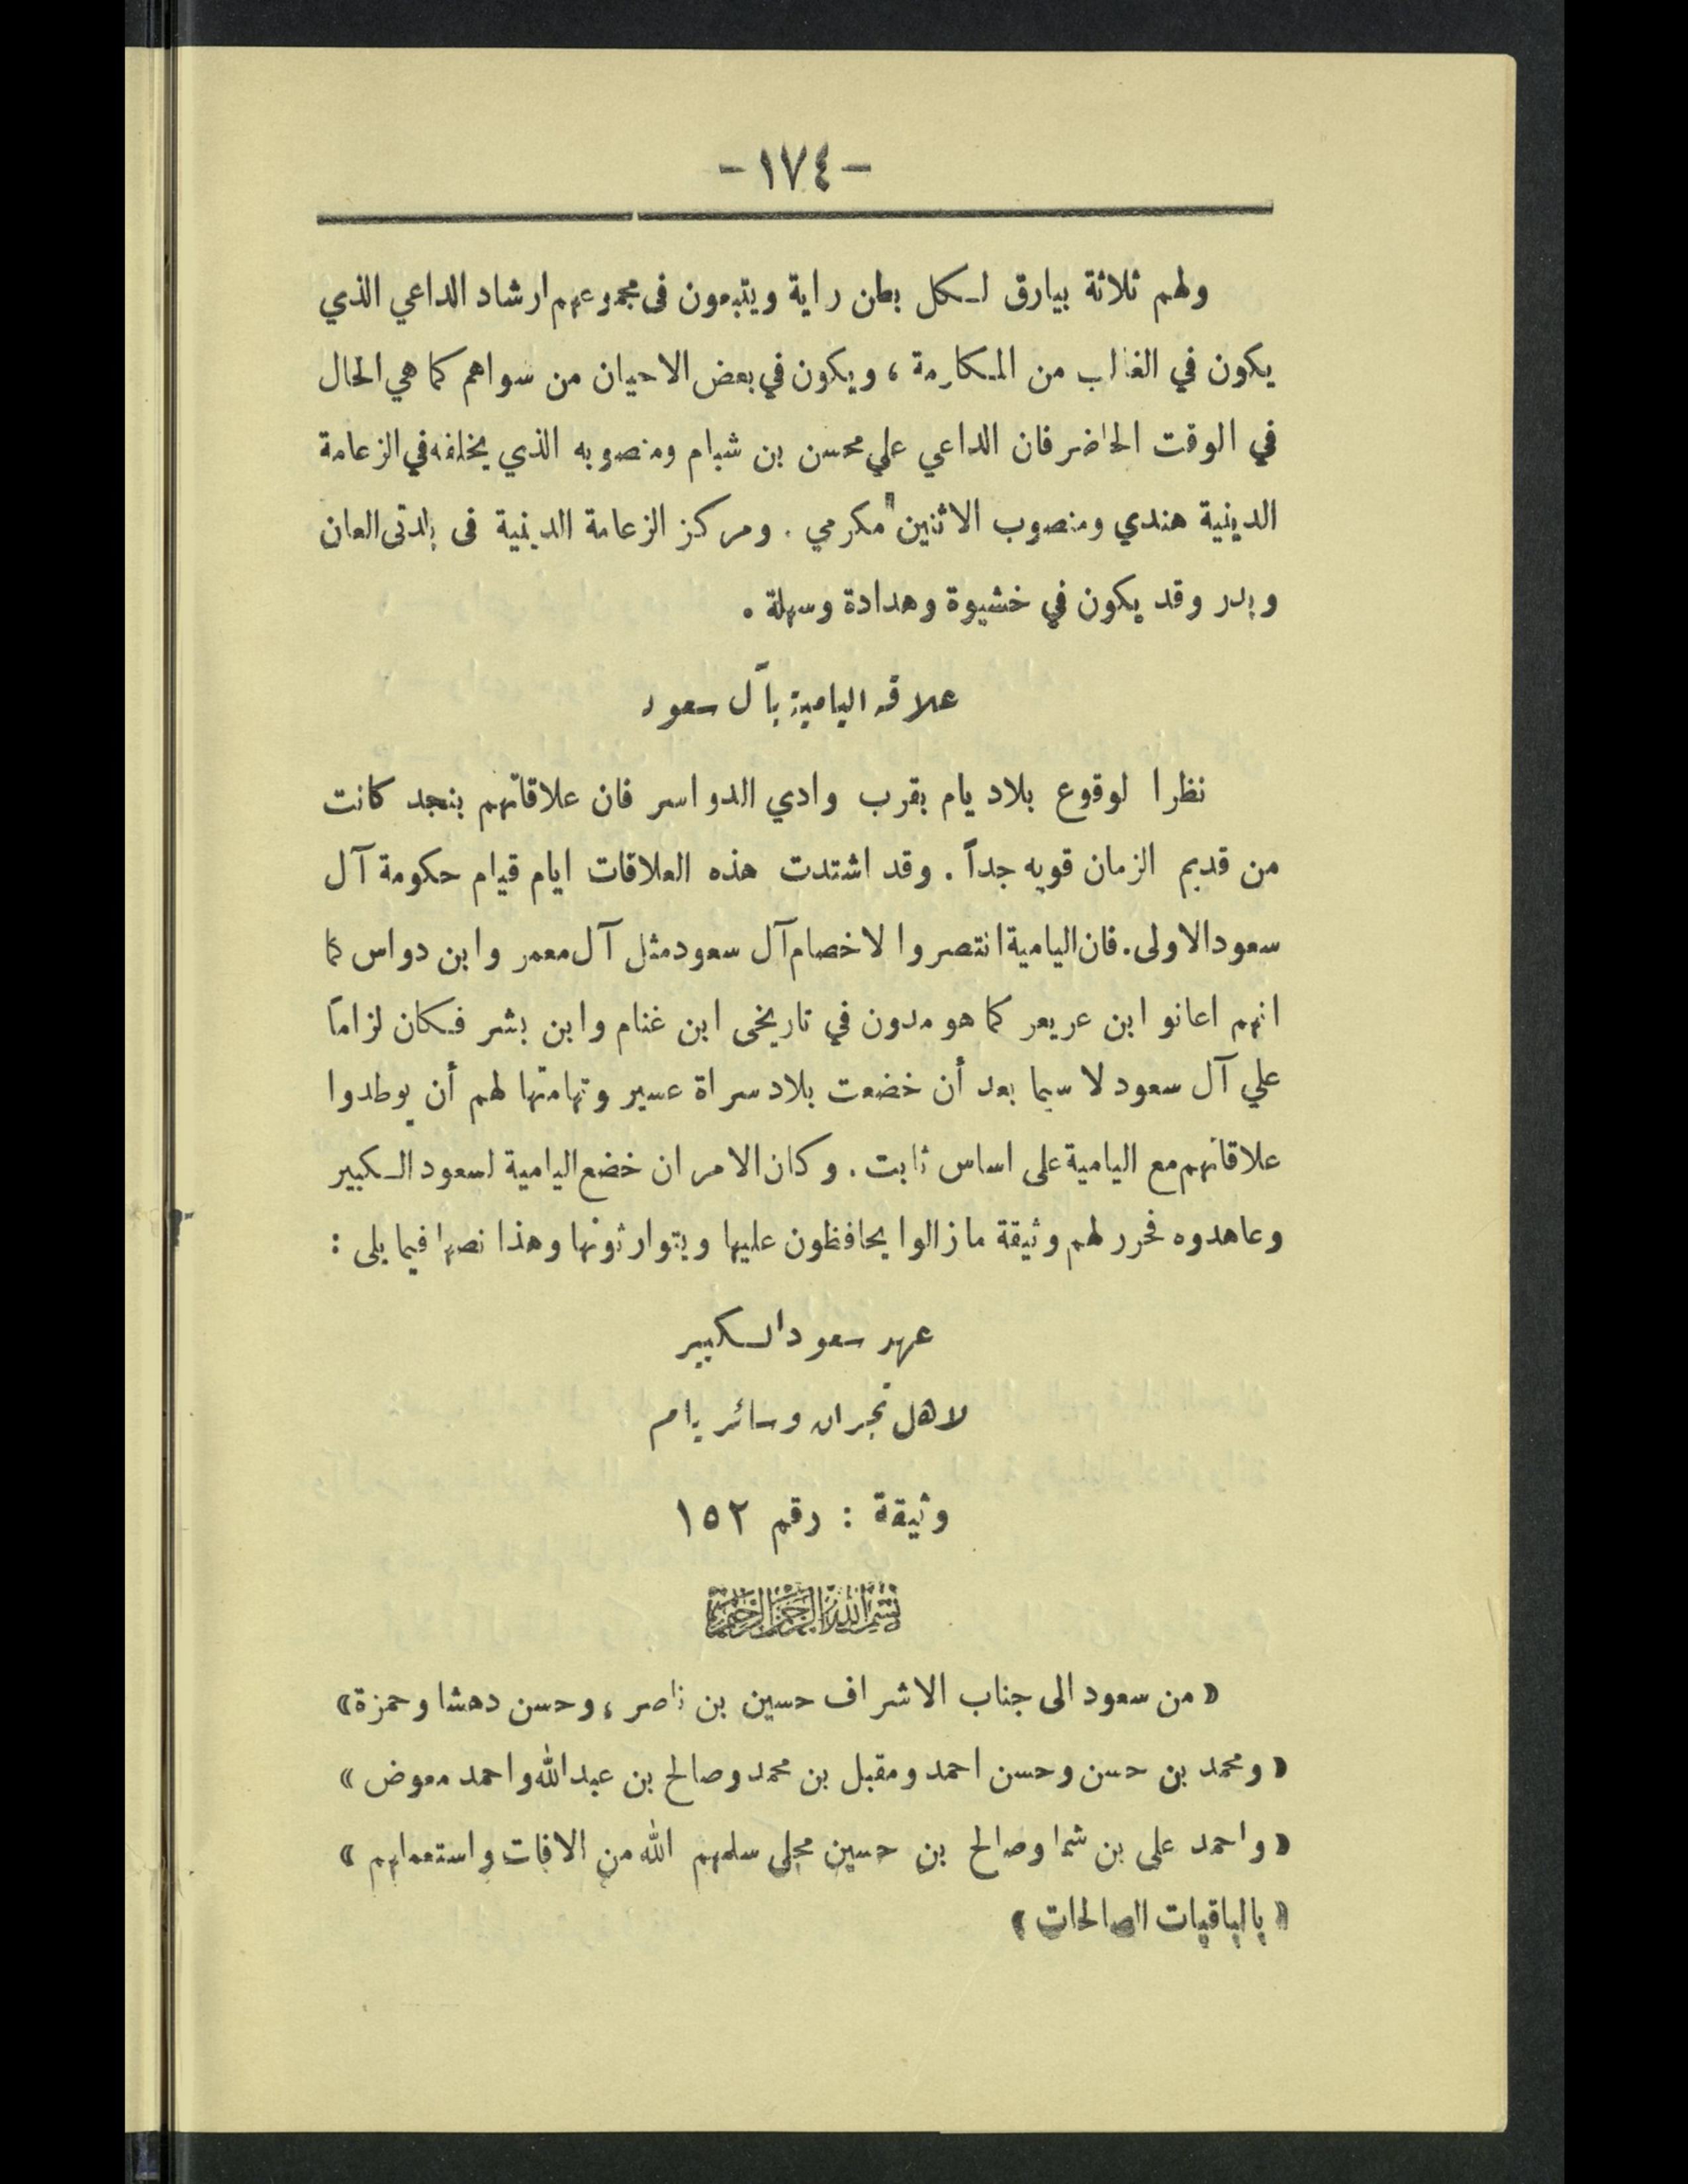 -١٧٤-
ولهم ثلاثة بيارق لكل بطن راية ويتبعون فى مجموعهم ارشاد الداعي الذي
يكون في الغالب من المكارمة ، ويكون في بعض الاحيان من سواهم كما هي الحال
في الوقت الحاضر فان الداعي علي محسن بن شبام ومنصوبه الذي يخلفه في الزعامة
الدينية هندي ومنصوب الاثنين مكرمي . ومركز الزعامة الدينية فى بلدتى العان
وبدر وقد يكون في خشيوة وهدادة وسهلة .
علاقة اليامية بآل سعود
نظرا لوقوع بلاد يام بقرب وادي الدواسر فان علاقاتهم بنجد كانت
من قديم الزمان قويه جداً . وقد اشتدت هذه العلاقات ايام قيام حكومة آل
سعود الاولى . فان اليامية انتصروا لاخصام آل سعود مثل آل معمر وابن دواس كما
انهم اعانو ابن عريعر كما هو مدون في تاريخى ابن غنام وابن بشر فكان لزاماً
علي آل سعود لا سيما بعد أن خضعت بلاد سراة عسير وتهامتها لهم أن يوطدوا
علاقاتهم مع اليامية على اساس ثابت . وكان الامر ان خضع اليامية لسعود الكبير
وعاهدوه فحرر لهم وثيقة ما زالوا يحافظون عليها ويتوارثونها وهذا نصها فيما يلى :
عهد سعود الكبير
لاهل نجران وسائر يام
وثيقة : رقم ١٥٢
بسم الله الرحمن الرحيم
« من سعود الى جناب الاشراف حسين بن ناصر ، وحسن دهشا وحمزة»
« ومحمد بن حسن وحسن احمد ومقبل بن محمد وصالح بن عبد الله واحمد معوض »
« واحمد على بن شما وصالح بن حسين مجلى سلمهم الله من الافات واستعملهم »
« بالباقيات الصالحات »